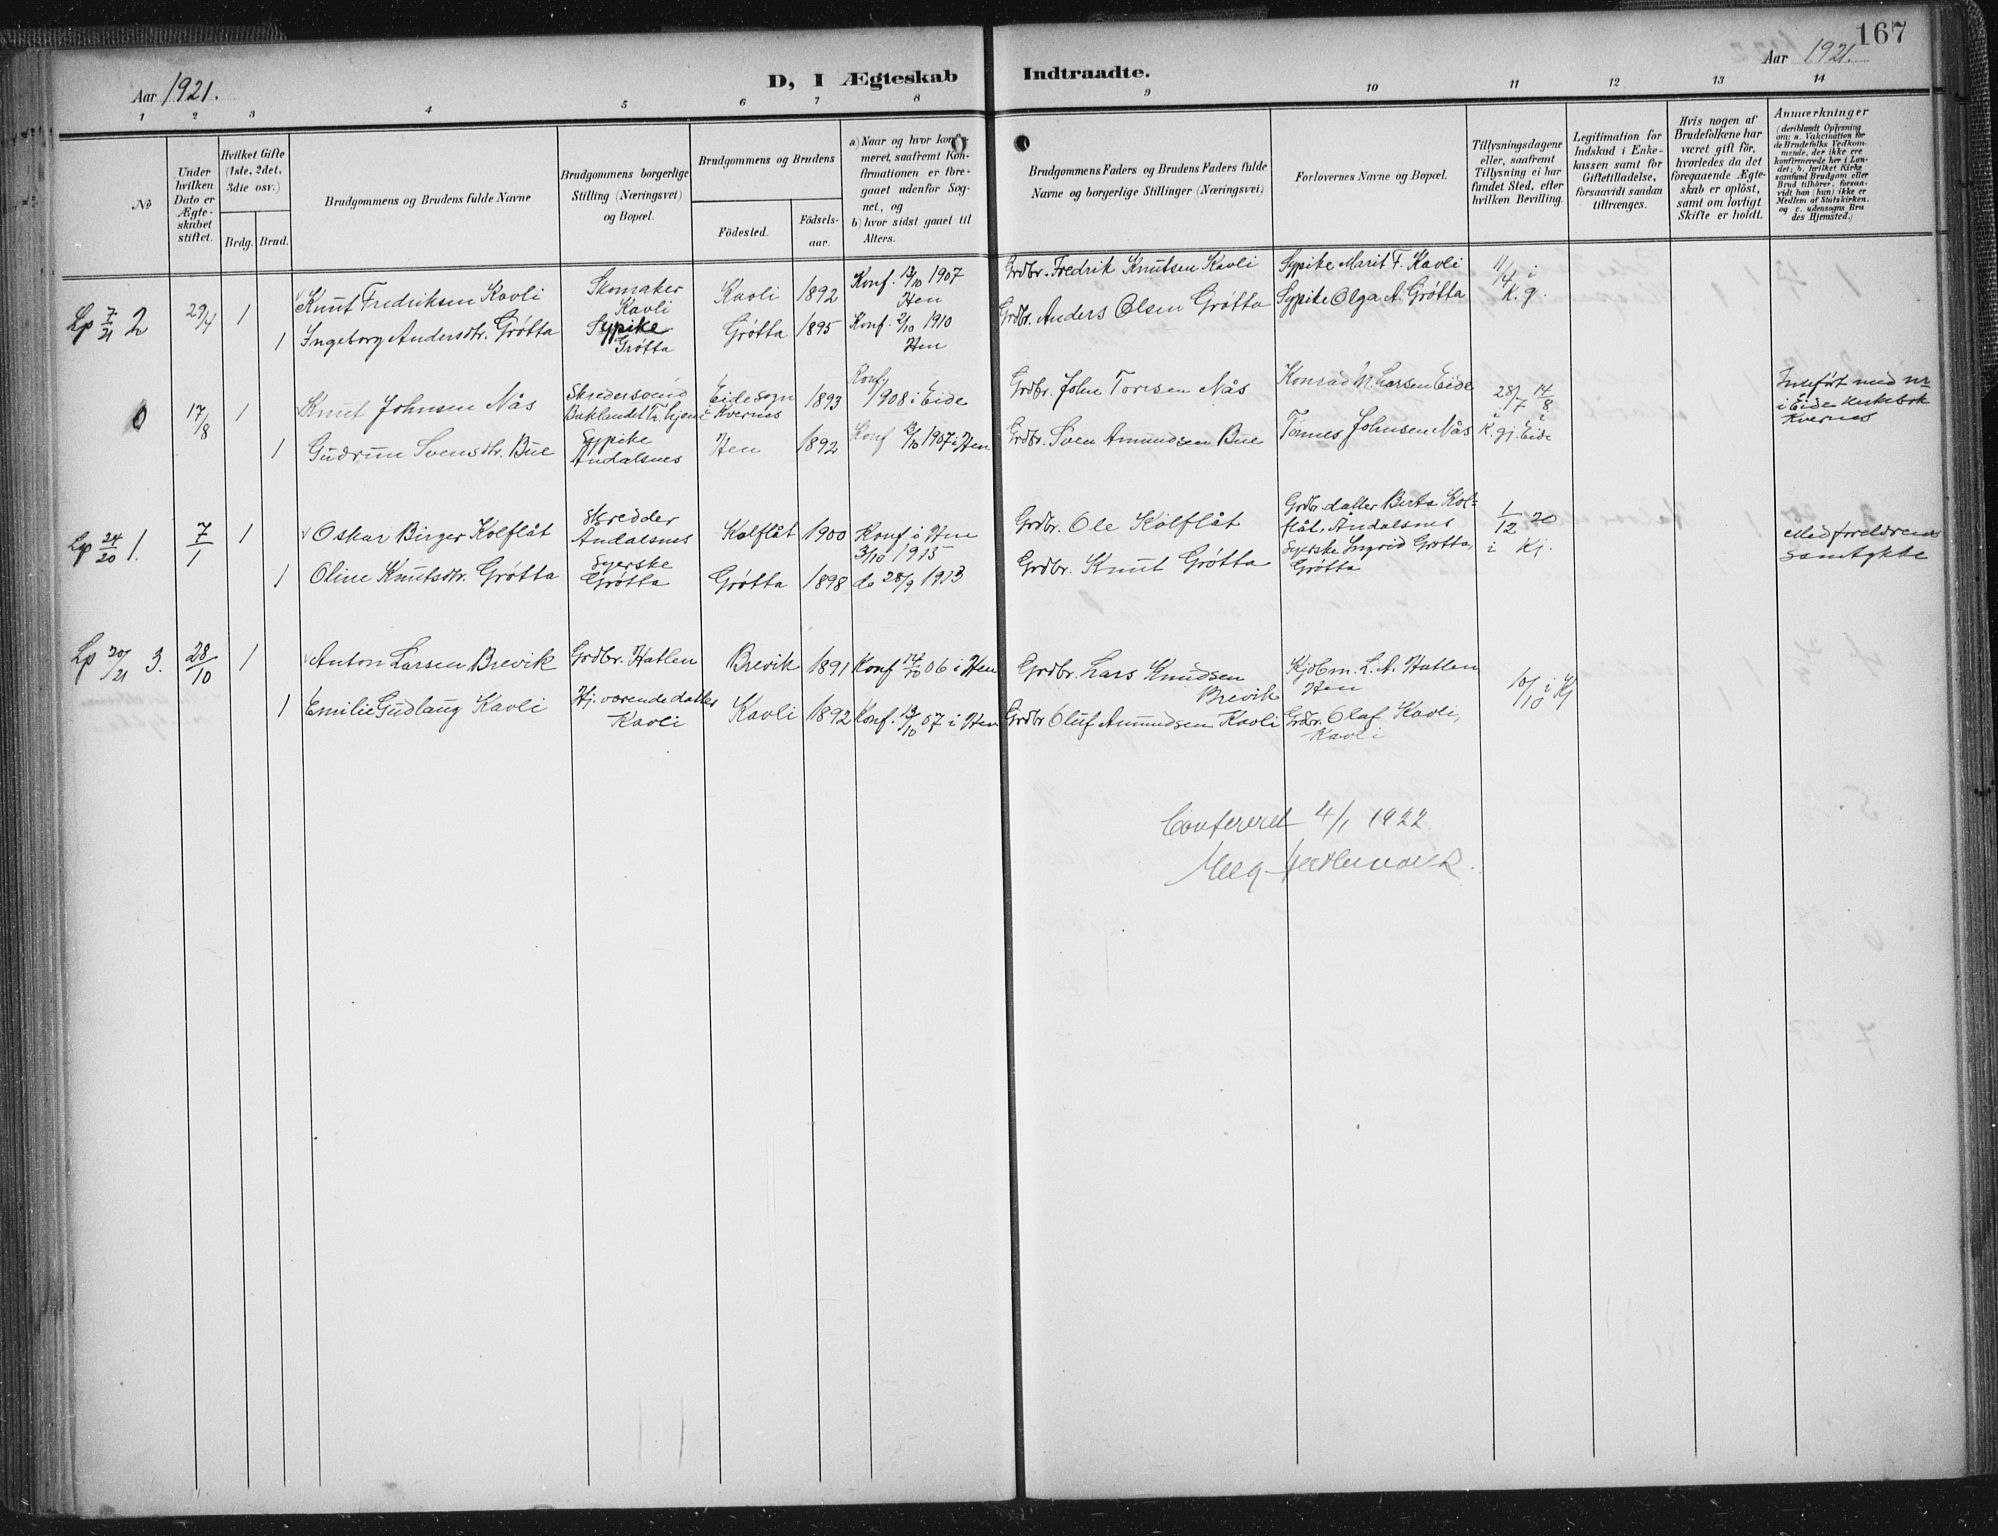 167
Aar 1921.
D, I Ægteskab Indtraadte.
Aar 1921.
1 2 3 4 5 6 7 8 9 10 11 12 13 14
No
Under hvilken Dato er Ægteskabet stiftet.
Hvilket Gifte (1ste, 2det, 3die osv.)
Brdg. Brud.
Brudgommens og Brudens fulde Navne
Brudgommens borgerlige Stilling (Næringsvei) og Bopæl.
Brudgommens og Brudens
Fødested. Fødselsaar.
a) Naar og hvor konfirmeret, saafremt Konfirmationen er foregaaet udenfor Sognet, og
b) hvor sidst gaaet til Alters.
Brudgommens Faders og Brudens Faders fulde Navne og borgerlige Stillinger (Næringsvei)
Forlovernes Navne og Bopæl.
Tillysningsdagene eller, saafremt Tillysning ei har fundet Sted, efter hvilken Bevilling.
Legitimation for Indskud i Enkekassen samt for Giftetilladelse, forsaavidt saadan tiltrænges.
Hvis nogen af Brudefolkene har været gift før, hvorledes da det foregaaende Ægteskab er opløst, samt om lovligt Skifte er holdt.
Anmærkninger
(deriblandt Oplysning om: a. Vakcination for de Brudefolks Vedkommende, der ikke ere konfirmerede her i Landet; b. hvilket Kirkesamfund Brudgom eller Brud tilhører, forsaavidt han (hun) ikke er Medlem af Statskirken, og c. udensogns Brudes Hjemsted.)
Lp 7/21 2 29/4 1 Knut Fredriksen Kavli Skomaker Kavli Kavli 1892 Konf. 13/10 1907 Hen Grdbr. Fredrik Knutsen Kavli Sypike Marit F. Kavli 11/4 i K. g.
1 Ingeborg Andersdtr. Grøtta Sypike Grøtta Grøtta 1895 Konf. 2/10 1910 Hen Grdbr. Anders Olsen Grøtta Sypike Olga A. Grøtta
0 17/8 1 Knut Johnsen Nås Skredersvend Baklandet Tr.hjem Eide sogn Kvernes 1893 Konf 1908 i Eide Grdbr. John Toresen Nås Konrad M. Larsen Eide 28/7 i K. gj. 14/8 i Eide Innført med nr i Eide kirkebok Kvernes
1 Gudrun Svensdtr. Bue Sypike Åndalsnes Hen 1892 Konf 13/10 1907 i Hen Grdbr. Sven Amundsen Bue Tønnes Johnsen Nås
Lp 24/20 1. 7/1 1 Oskar Birger Kolflåt Skredder Åndalsnes Kolflåt 1900 Konf i Hen 3/10 1915 Grdbr. Ole Kolflåt Grdbr datter Berta Kolflåt. Åndalsnes 1/12 20 i Kj. Med foreldrenes samtykke
1 Oline Knutsdtr. Grøtta Syerske Grøtta Grøtta 1898 do 28/9 1913 Grdbr. Knut Grøtta Syerske Ingrid Grøtta, Grøtta
Lp 20/21 3. 28/10 1 Anton Larsen Brevik Grdbr. Hatlen Brevik 1891 Konf 14/10 06 i Hen Grdbr. Lars Knudsen Brevik Kjøbm. L. A. Hatlen Hen 10/10 i Kj
1 Emilie Gudlaug Kavli Hj. værende datter Kavli Kavli 1892 Konf. 13/10 07 i Hen Grdbr Oluf Amundsen Kavli Grdbr. Olaf Kavli, Kavli
Confereret 4/1 1922.